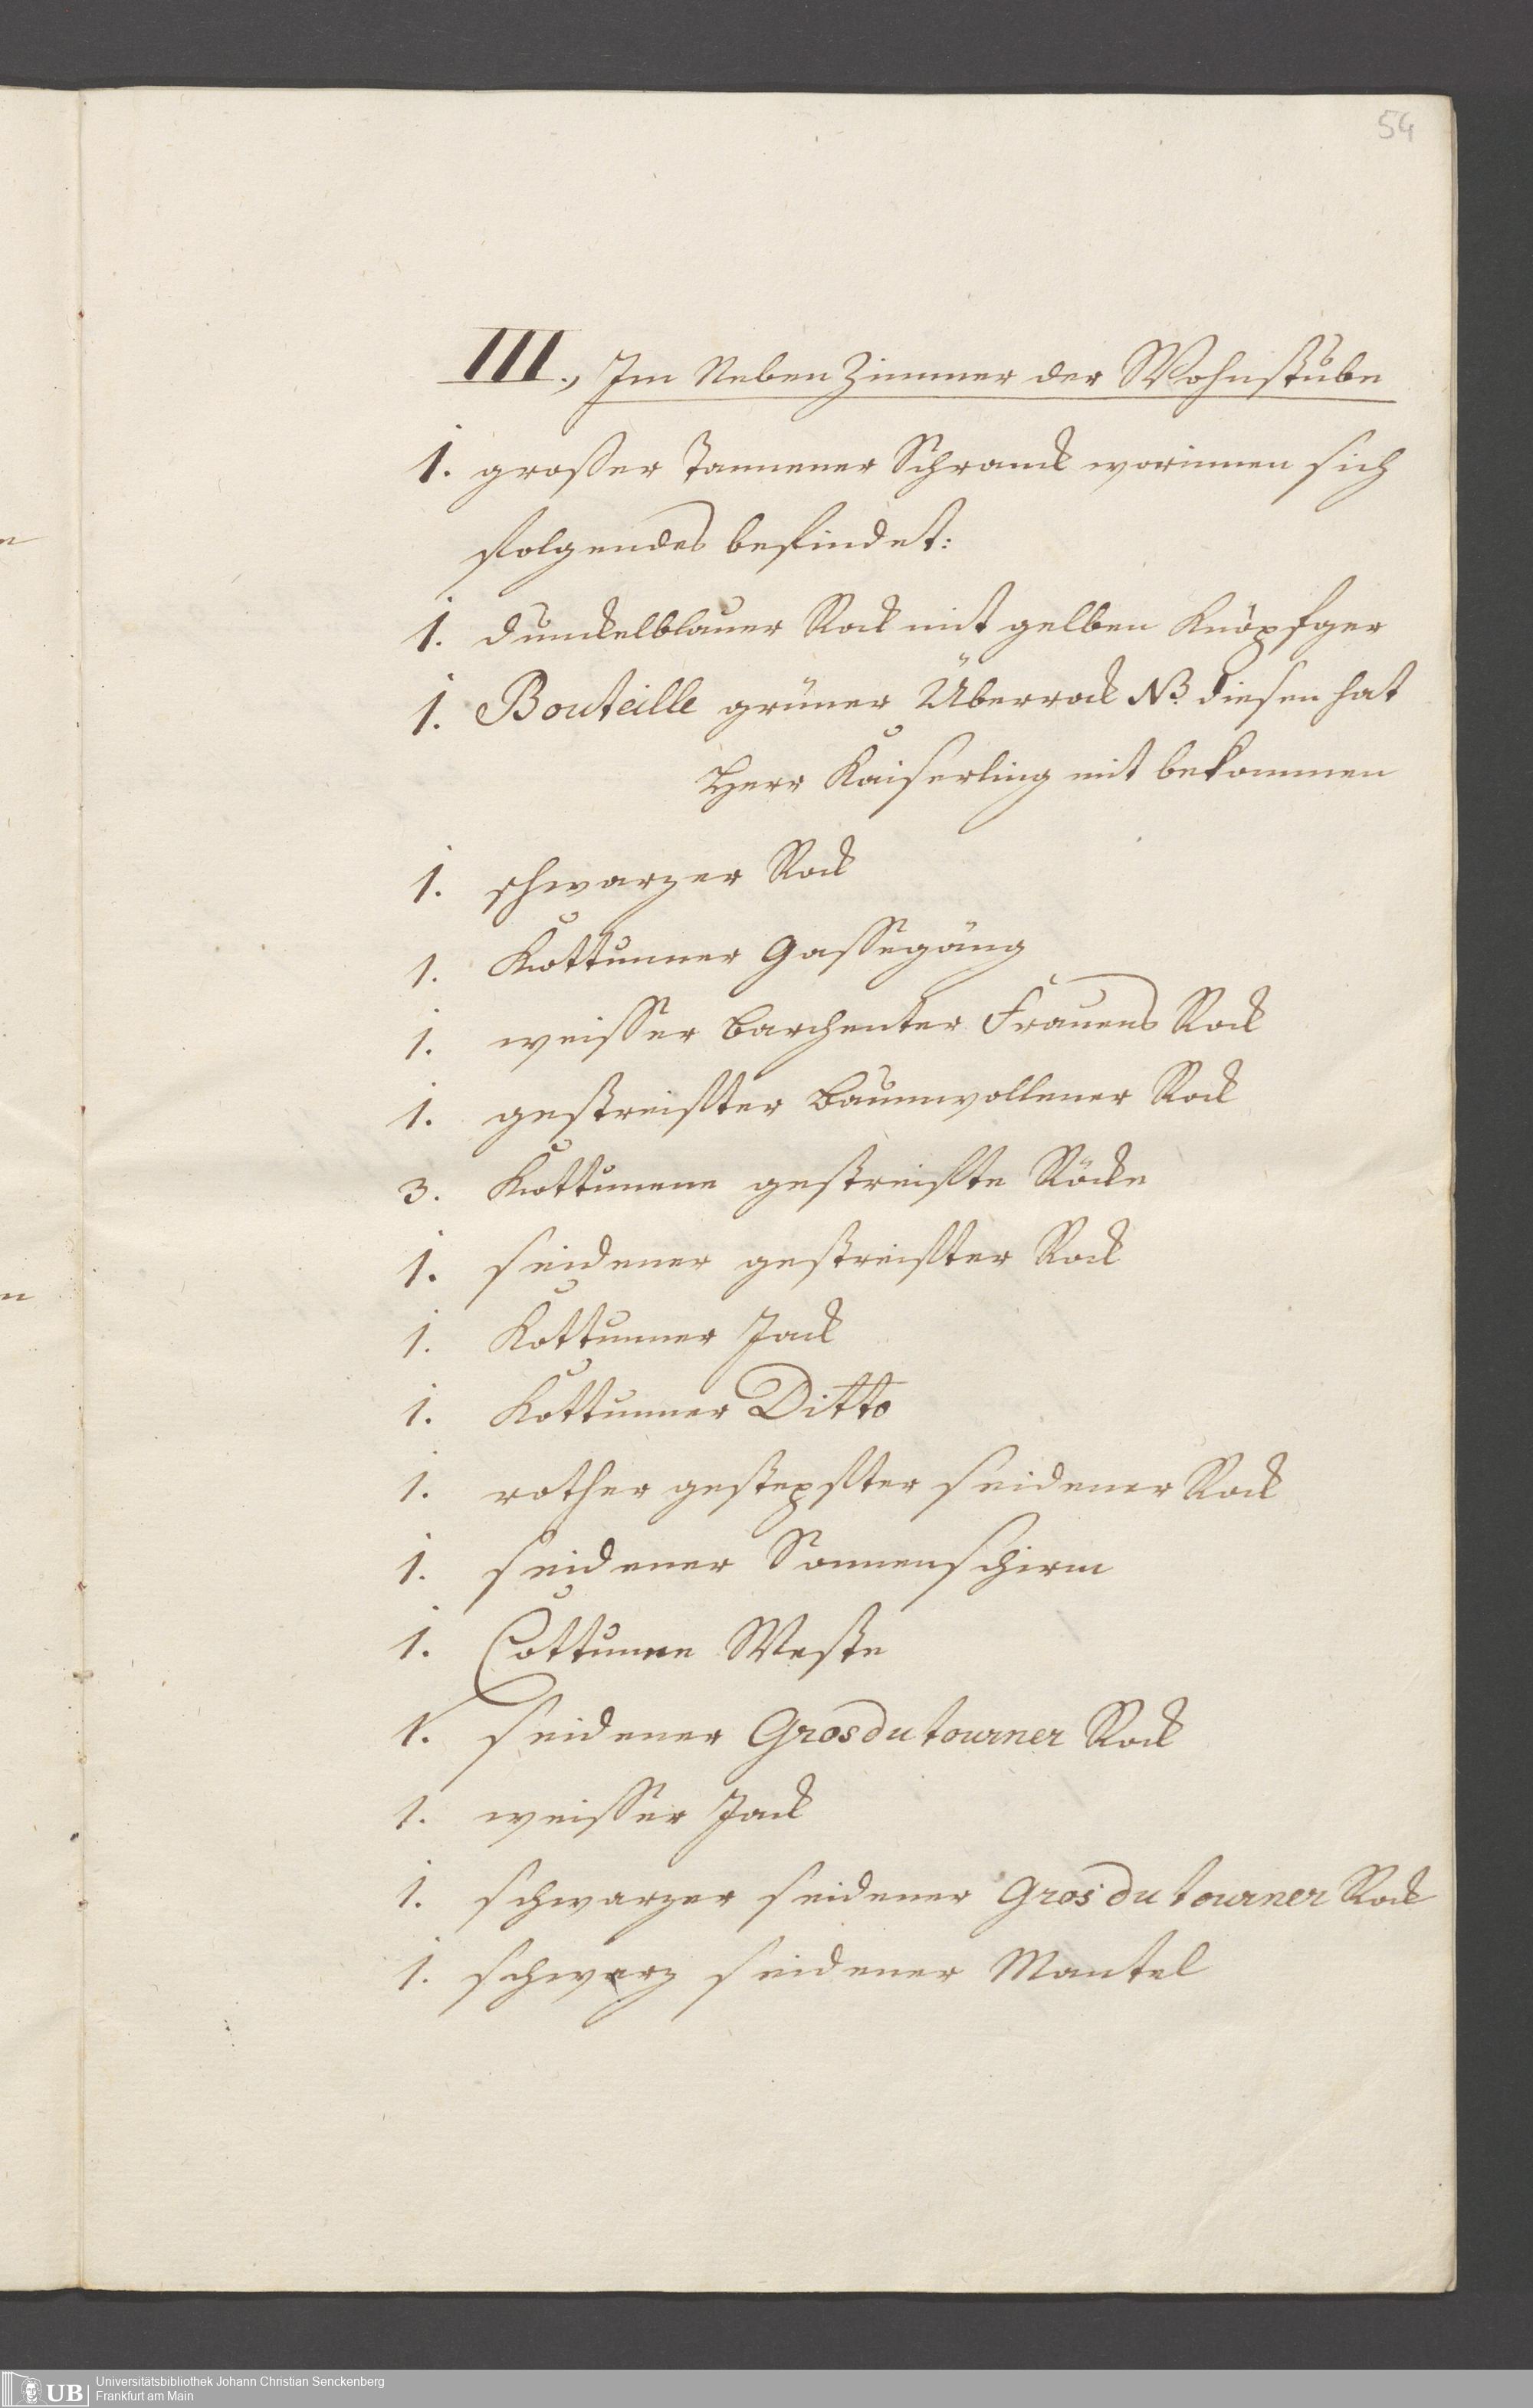 54
III., Im Neben Zimmer der Wohnstube
1. großer Tannener Schranck worinnen sich
folgendes befindet:
1. dunckelblauer Rock mit gelben Knöpfger
1. Bouteille grüner Überrock NB. diesen hat
Herr Kaiserling mit bekommen
1. schwarzer Rock
1. Kottunner Gassegäng
1. weisser barchenter Frauens Rock
1. gestreifter baumwollener Rock
3. Kottunene gestreifte Röcke
1. seidener gestreifter Rock
1. Kottunner Jack
1. Kottunner Ditto
1. rother gestepfter seidener Rock
1. seidener Sonnenschirm
1. Cottunne Weste
1. seidener Grosdutourner Rock
1. weisser Jack
1. schwarzer seidener Gros du tourner Rock
1. schwarz seidener Mantel
UB
Universitätsbibliothek Johann Christian Senckenberg
Frankfurt am Main